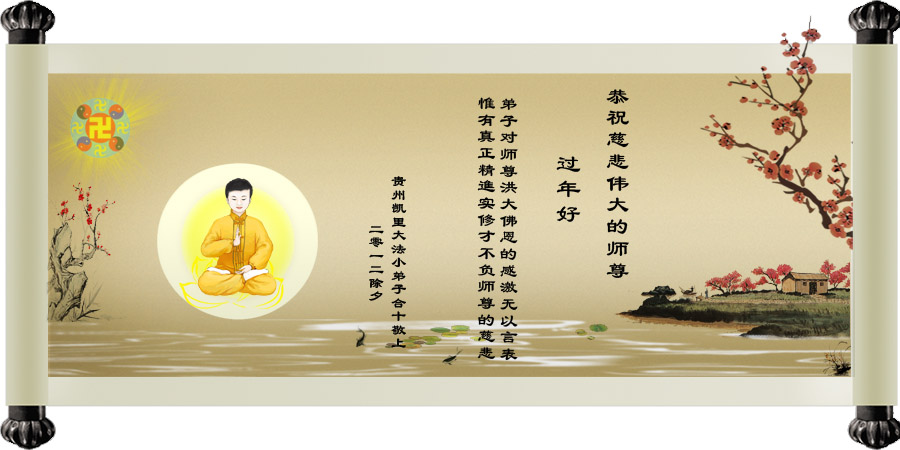 恭祝慈悲伟大的师尊
过年好
弟子对师尊洪大佛恩的感激无以言表
惟有真正精進实修才不负师尊的慈悲
贵州凯里大法小弟子合十敬上
二零一二除夕